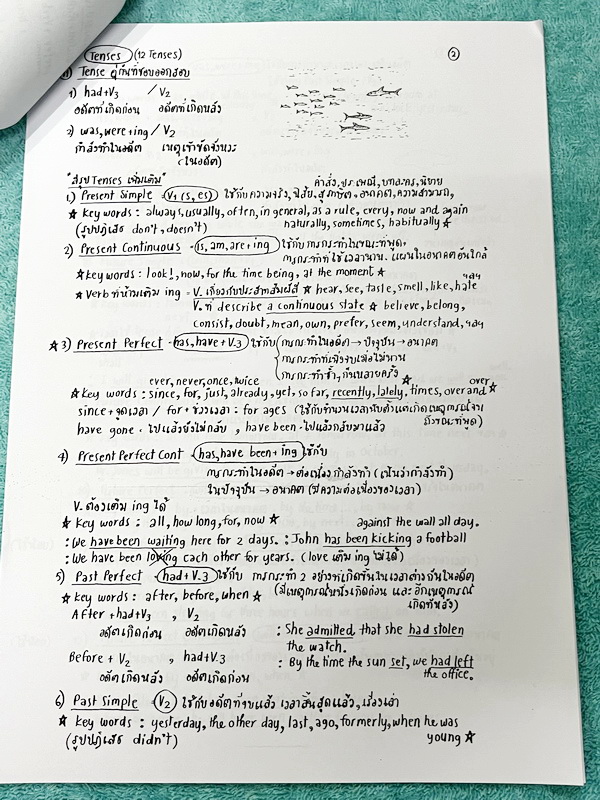 Tenses (12 Tenses)
2
1) Tense คู่กันที่ชอบออกสอบ
1) had+V3 / V2
อดีตที่เกิดก่อน อดีตที่เกิดหลัง
2) was,were+ing / V2
กำลังทำในอดีต เหตุเข้าขัดจังหวะ
(ในอดีต)
"สรุป Tenses เพิ่มเติม"
คำสั่ง, ประเพณี, บทละคร, นิยาย
1) Present Simple - V1 (s, es) ใช้กับความจริง, นิสัย, สุภาษิต, อนาคต, ความสามารถ,
★ Key words : always, usually, often, in general, as a rule, every, now and again
(รูปปฏิเสธ don't, doesn't) naturally, sometimes, habitually ★
2) Present Continuous - is, am, are + ing ใช้กับ การกระทำในขณะที่พูด,
การกระทำที่ใช้เวลานาน, แผนในอนาคตอันใกล้
★ Key words : look!, now, for the time being, at the moment ★
★ Verb ที่ห้ามเติม ing = V. เกี่ยวกับประสาทสัมผัส ★ hear, see, taste, smell, like, hate ฯลฯ
V. ที่ describe a continuous state ★ believe, belong,
consist, doubt, mean, own, prefer, seem, understand, ฯลฯ
★ 3) Present Perfect - has, have + V.3 ใช้กับ การกระทำในอดีต → ปัจจุบัน → อนาคต
การกระทำที่เพิ่งจบเมื่อไม่นาน
การกระทำซ้ำๆ กันหลายครั้ง
ever, never, once, twice
★ Key words : since, for, just, already, yet, so far, recently, lately, times, over and over ★
since + จุดเวลา / for + ช่วงเวลา : for ages (ใช้กับจำนวนเวลานับตั้งแต่เกิดเหตุการณ์จน
have gone - ไปแล้วยังไม่กลับ , have been - ไปแล้วกลับมาแล้ว ถึงขณะที่พูด)
4) Present Perfect Cont - has, have been + ing ใช้กับ
การกระทำในอดีต → ต่อเนื่อง กำลังทำ (เน้นว่ากำลังทำ)
ในปัจจุบัน → อนาคต (มีความต่อเนื่องของเวลา)
V. ต้องเติม ing ได้
★ Key words : all, how long, for, now ★ against the wall all day.
: We have been waiting here for 2 days. : John has been kicking a football
: We have been loving each other for years. (love เติม ing ไม่ได้)
5) Past Perfect - had + V.3 ใช้กับ การกระทำ 2 อย่างที่เกิดขึ้นในเวลาต่างกันในอดีต
★ Key words : after, before, when ★ (มีเหตุการณ์หนึ่งเกิดก่อน และ อีกเหตุการณ์
เกิดทีหลัง)
After + had+V3 , V2
อดีตเกิดก่อน อดีตเกิดหลัง : She admitted that she had stolen
the watch.
Before + V2 , had+V.3 : By the time the sun set, we had left
อดีตเกิดหลัง อดีตเกิดก่อน the office.
6) Past Simple - V2 ใช้กับอดีตที่จบแล้ว เวลาสิ้นสุดแล้ว, เรื่องเล่า
★ Key words : yesterday, the other day, last, ago, formerly, when he was
(รูปปฏิเสธ didn't) young ★